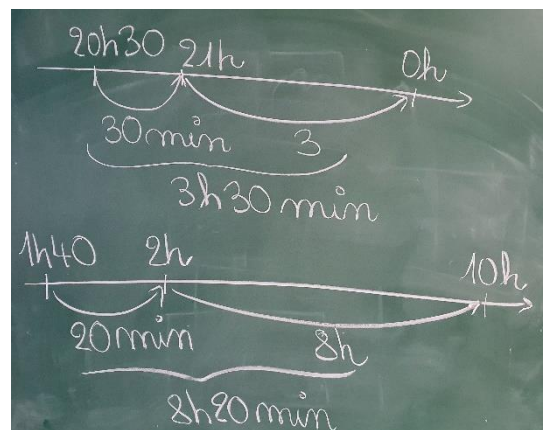 20h30 21h 0h
30min 3
3h30min
1h40 2h 10h
20min 8h
8h20min